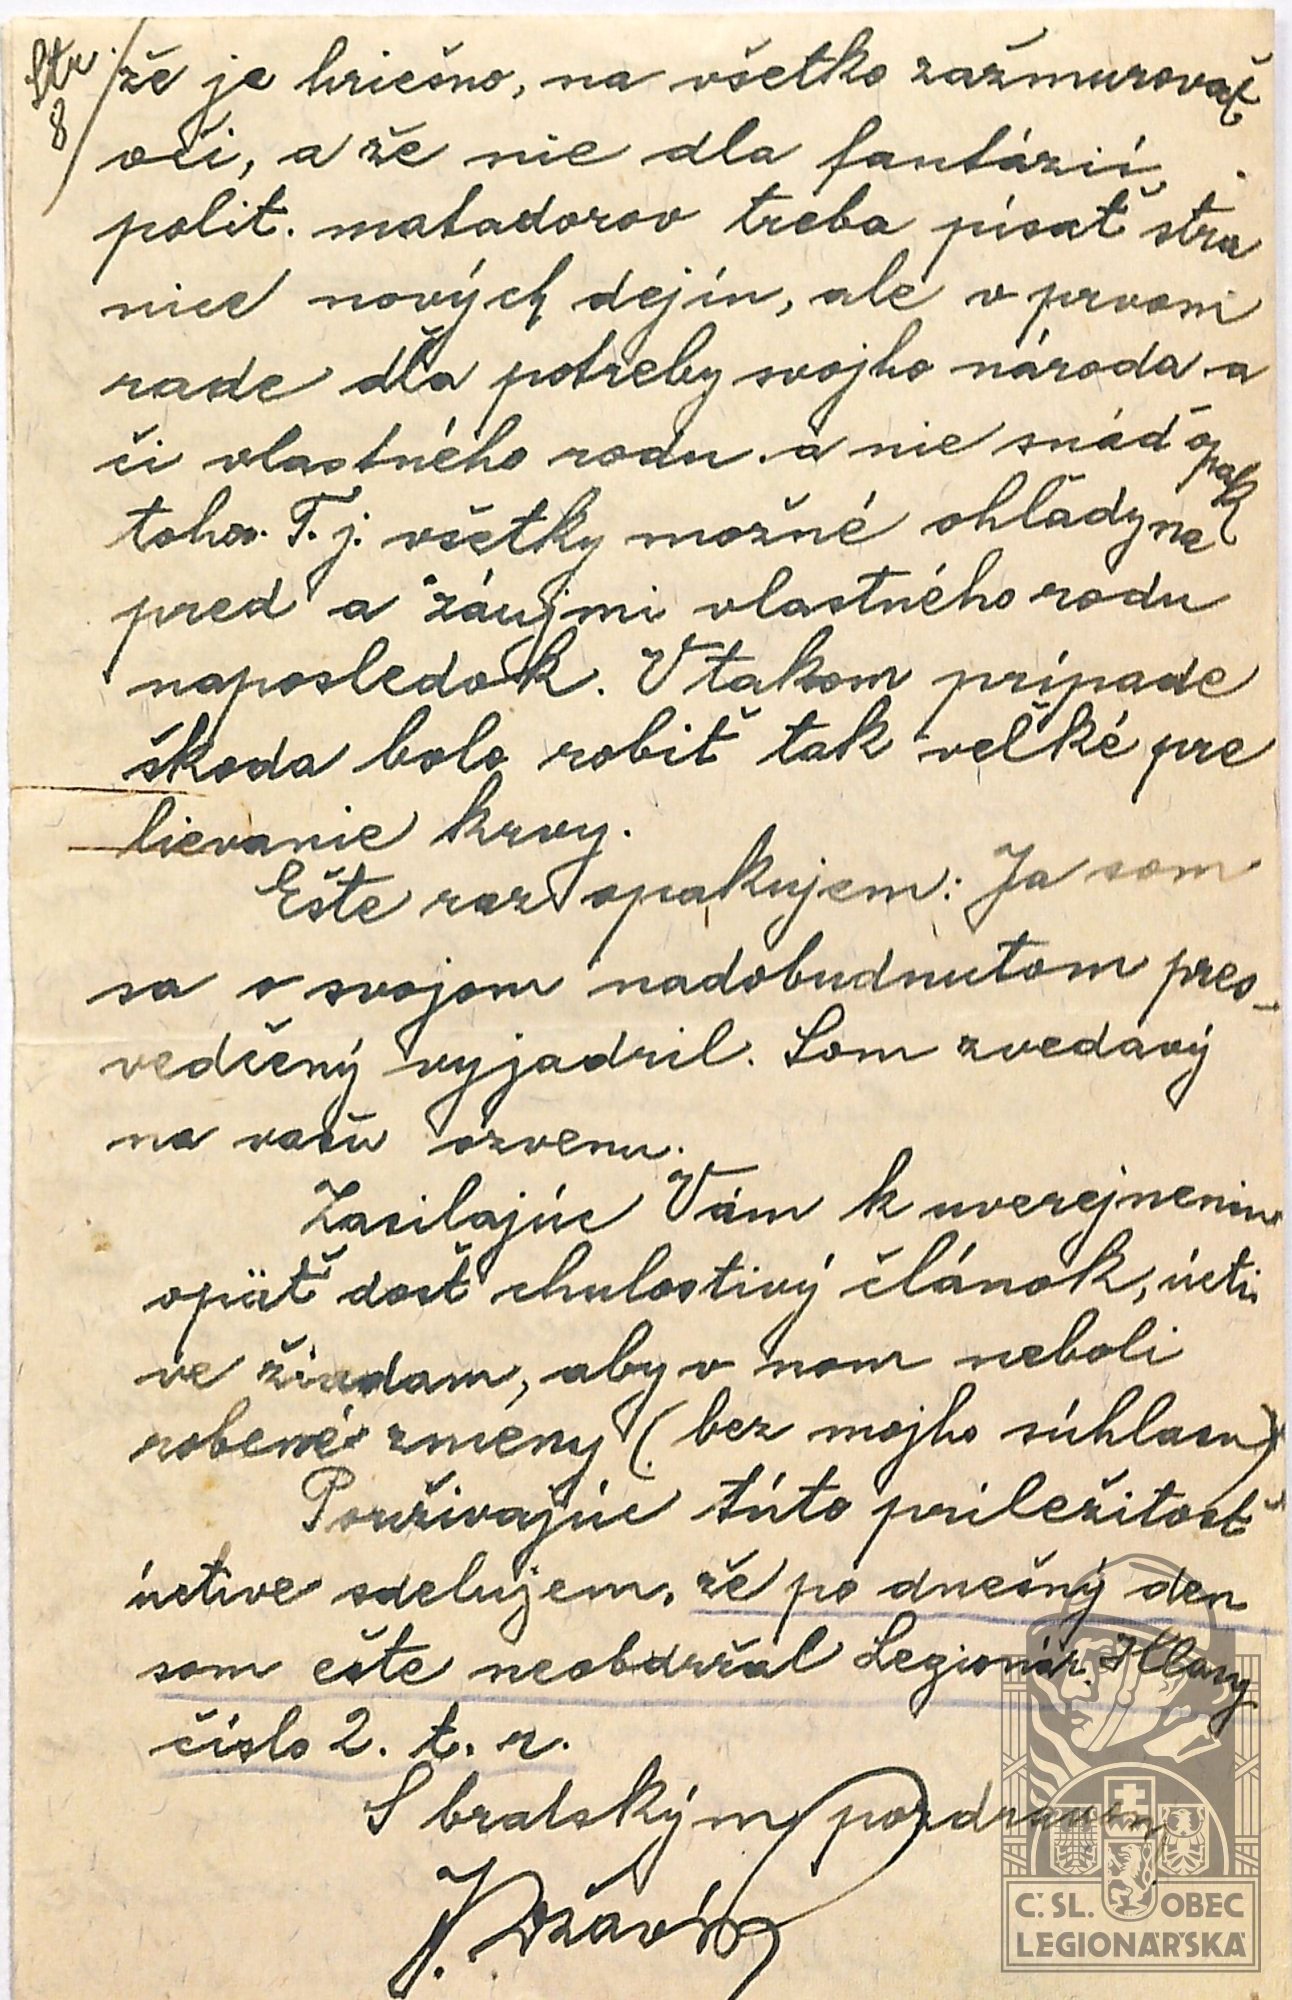 Str. 8
že je hriešno, na všetko zažmurovať
oči, a že nie dla fantázií
polit. matadorov treba písať stra
nice nových dejín, ale v prvom
rade dľa potreby svojho národa a
či vlastného rodu a nie snáď opak
toho. T.j. všetky možné ohľady na
pred a záujmi vlastného rodu
naposledok. V takom prípade
škoda bolo robiť tak veľké pre
lievanie krvy.
Ešte raz opakujem: Ja som
sa o svojom nadobudnutom pres-
vedčený vyjadril. Som zvedavý
na vašu ozvenu.
Zasilajúc Vám k uverejneniu
opäť dosť chulostivý článok, úcti
ve žiadam, aby v nom neboli
robené zmeny (bez mojho súhlasu)
Používajúc túto priležitosť
úctive sdelujem, že po dnešný den
som ešte neobdržal Legionár. Hlasy
číslo 2. t. r.
S bratským pozdravom
C.SL. OBEC
LEGIONÁŘSKÁ